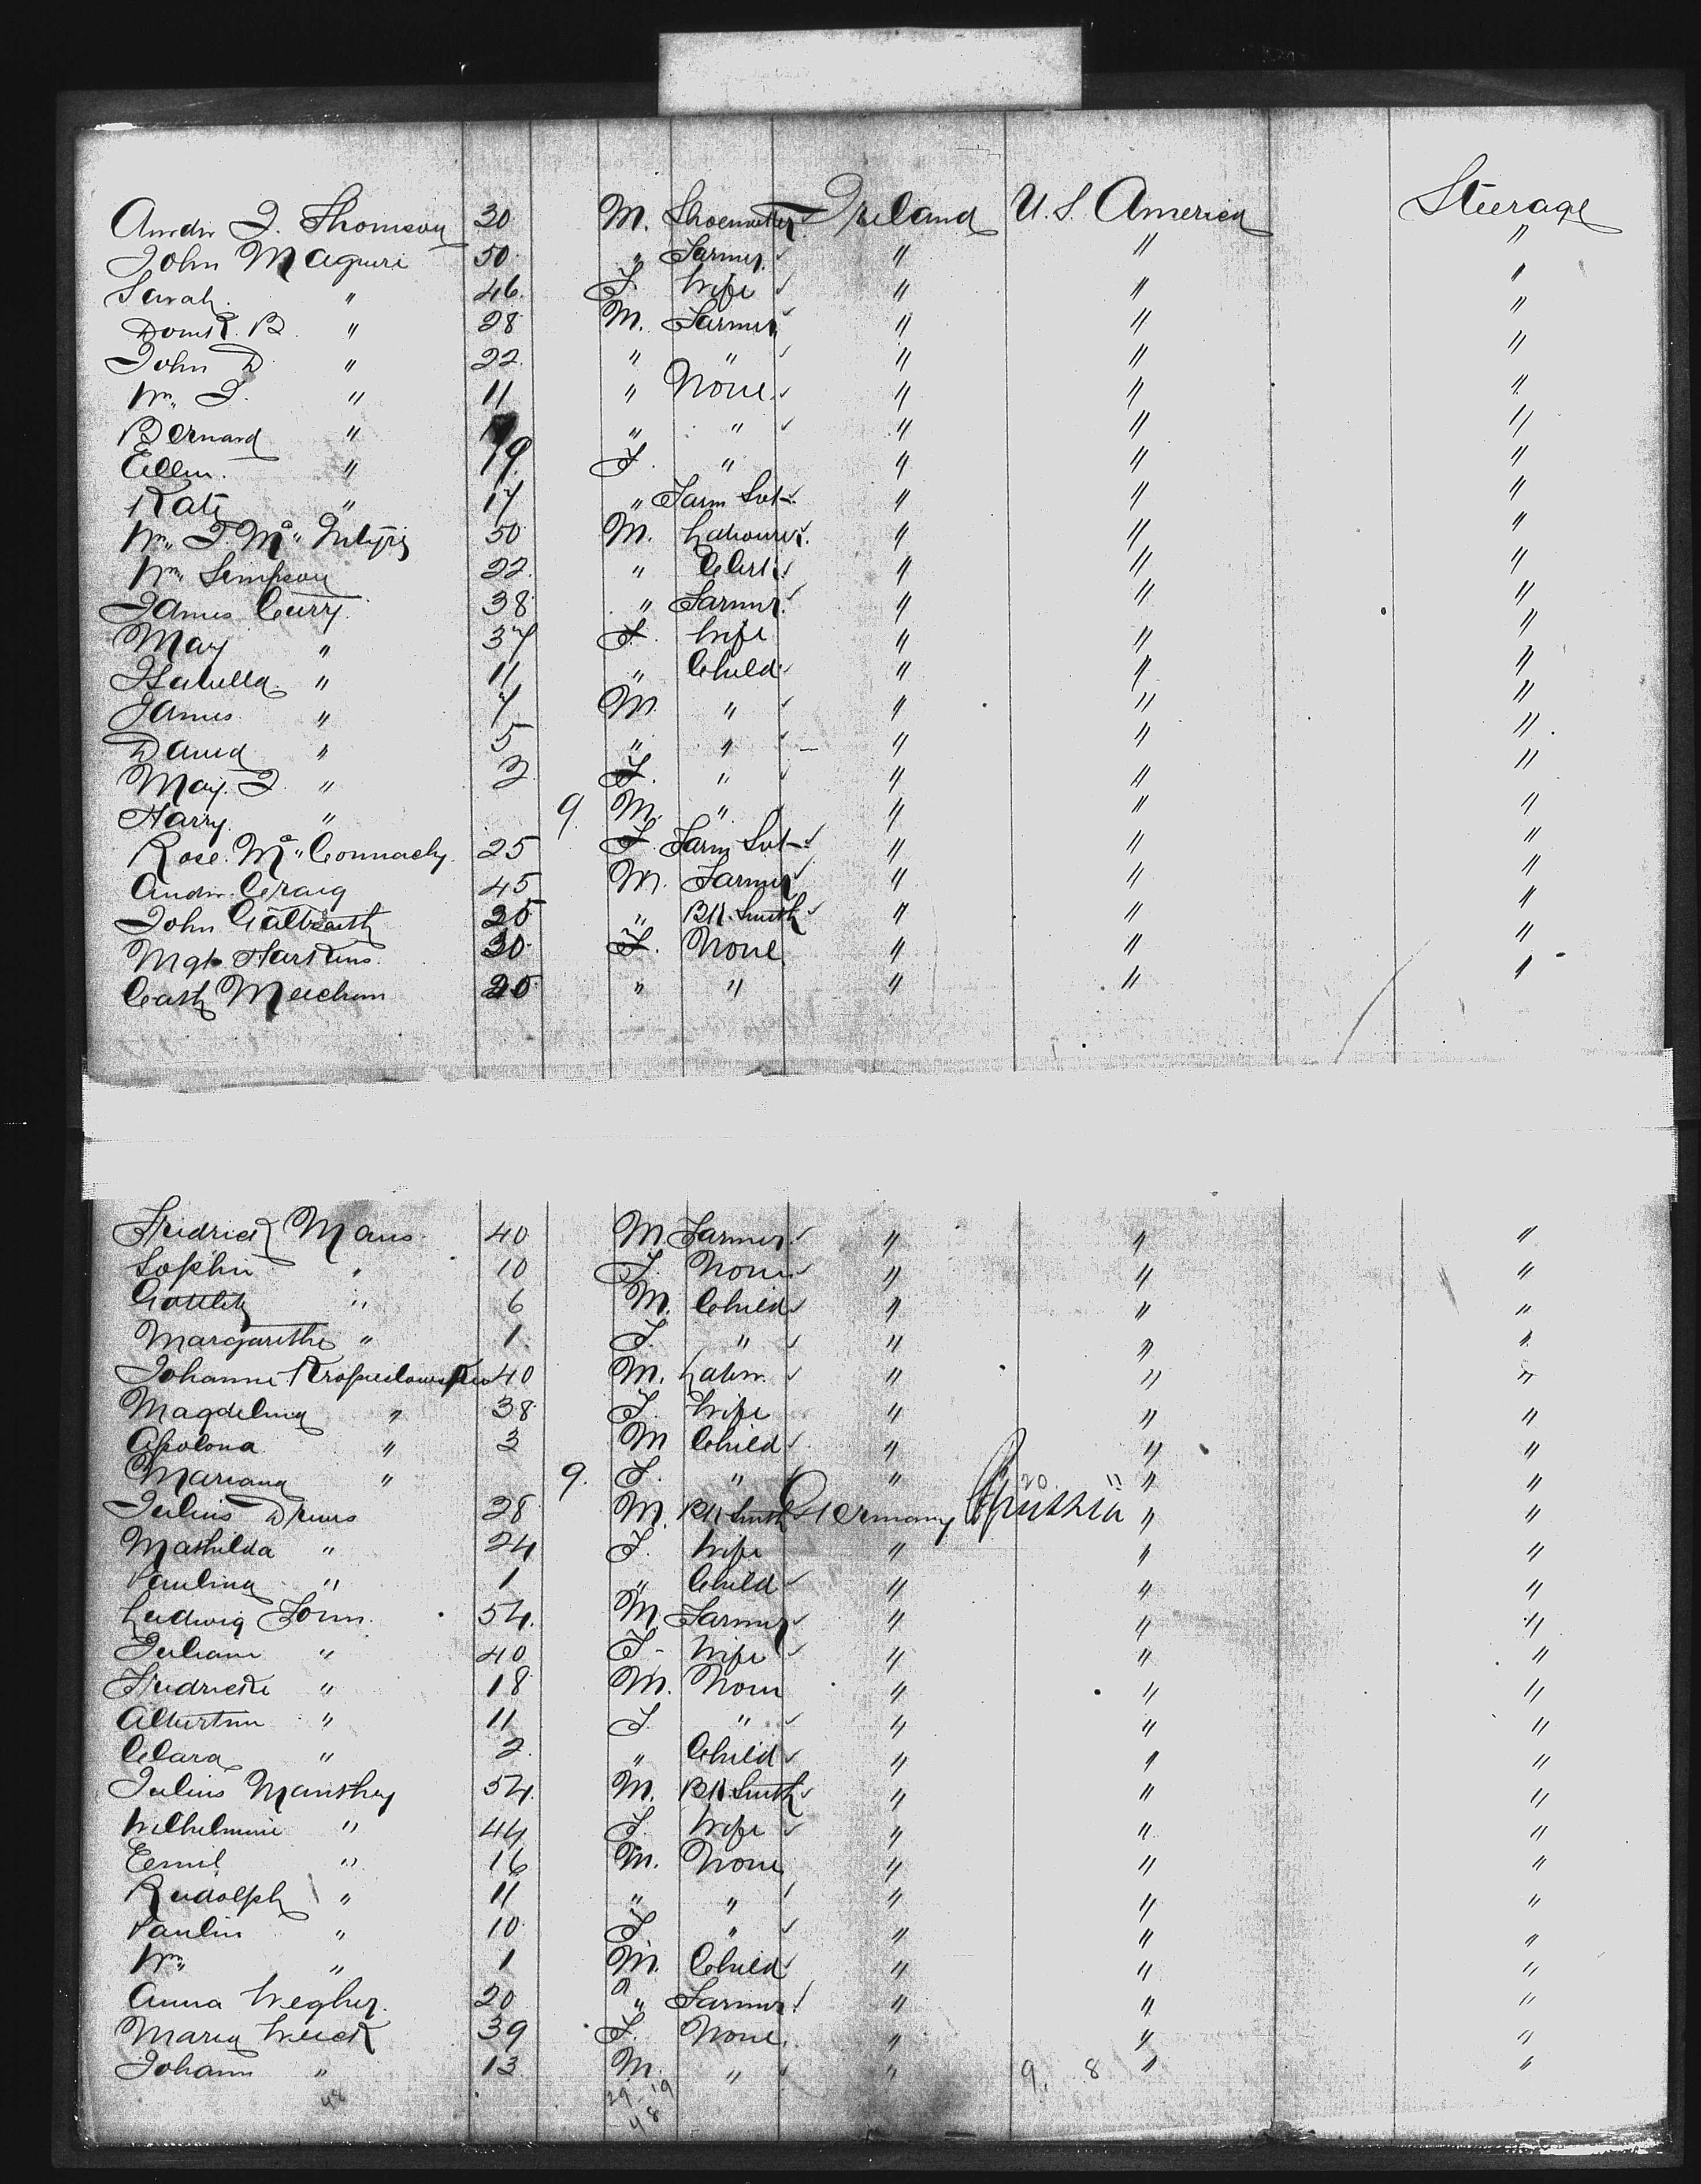 Andw J. Thomson 30 M. Shoemaker Ireland U.S. America Steerage
John Maguire 50 " Farmer " " "
Sarah " 46 F. Wife " " "
Domk. B " 28 M. Farmer " " "
John D " 22 " " " " "
Wm. J. " 11 " None " " "
Bernard " " " " " "
Ellen " 19 F. " " " "
Kate " 17 " Farm Svt " " "
Wm. J Mc. Intyre 50 M. Labourer " " "
Wm. Simpson 22 " Clerk " " "
James Curry 38 " Farmer " " "
May " 37 F. Wife " " "
Isabella " 11 " Child " " "
James " 7 M. " " " "
David " 5 " " " " "
May. J " 2 F. " " " "
Harry " 9. M. " " " "
Rose Mc. Connachy 25 F. Farm Svt " " "
Andw. Craig 45 M. Farmer " " "
John Galbraith 25 " Blk. Smith " " "
Mgt. Harkins 30 F. None " " "
Cath Meechan 20 " " " " "
Fredrick Maus 40 M. Farmer " " "
Sophie " 10 F. None " " "
Gottlieb " 6 M. Child " " "
Margarethe " 1 F. " " " "
Johanne 40 M. Labr. " " "
Magdelina " 38 F. Wife " " "
Apolona " 3 M Child " " "
Mariana " 9. F. " " 20 " " "
Julius Drews 28 M. Blk Smith Germany Prussia " "
Mathilda " 24 F. Wife " " "
Paulina " 1 " Child " " "
Ludwig Form 54. M. Farmer " " "
Juliane " 40 F. Wife " " "
Fredricke " 18 M. None " " "
Albertine " 11 F. " " " "
Clara " 2 " Child " " "
Julius Manthey 54. M. Blk Smith " " "
Wilhelmine " 44 F. Wife " " "
Emil " 16 M. None " " "
Rudolph " 11 " " " " "
Paulin " 10 F. " " " "
Wm. " 1 M. Child " " "
Anna Wegher 20 " Farmer " " "
Maria Weick 39 F. None " " "
Johann " 13 M. " " 9. 8 " "
48 29 19
48